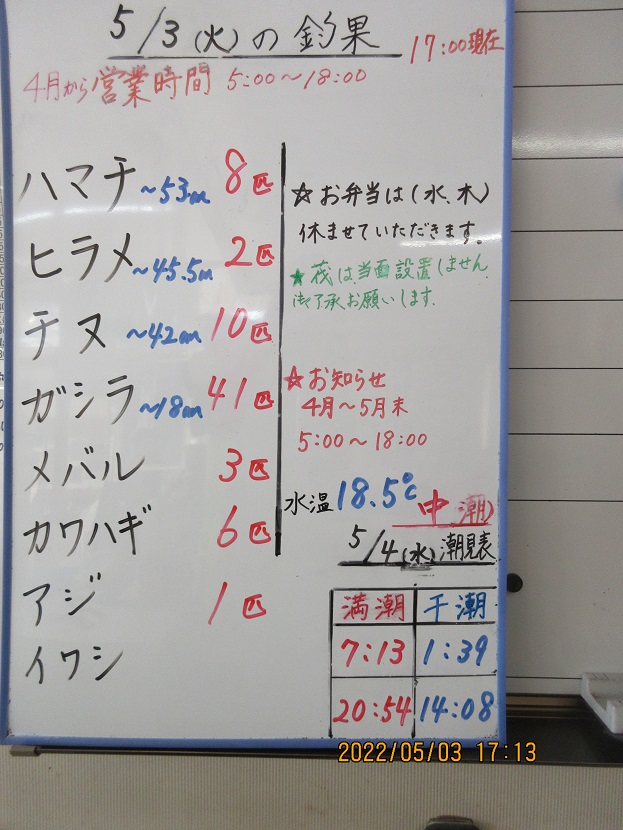 5/3(火)の釣果
17:00現在
4月から営業時間 5:00～18:00
ハマチ ～53cm 8匹
ヒラメ ～45.5cm 2匹
チヌ ～42cm 10匹
ガシラ ～18cm 41匹
メバル 3匹
カワハギ 6匹
アジ 1匹
イワシ
☆お弁当は(水、木)
休ませていただきます。
★筏は当面設置しません
御了承お願いします。
☆お知らせ
4月～5月末
5:00～18:00
水温 18.5℃
中潮
5/4(水)潮見表
満潮 干潮
7:13 1:39
20:54 14:08
2022/05/03 17:13